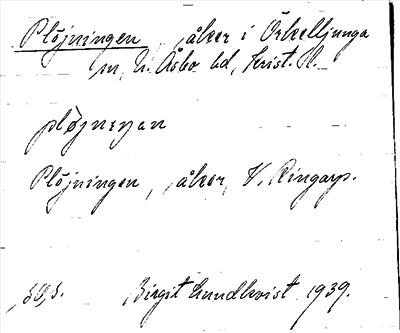 Plöjningen, åker i Örkelljunga
sn, N. Åsbo hd, Krist. l.
plöjneņan
Plöjningen, åker, V. Ringarp.
Birgit Lundkvist 1939.